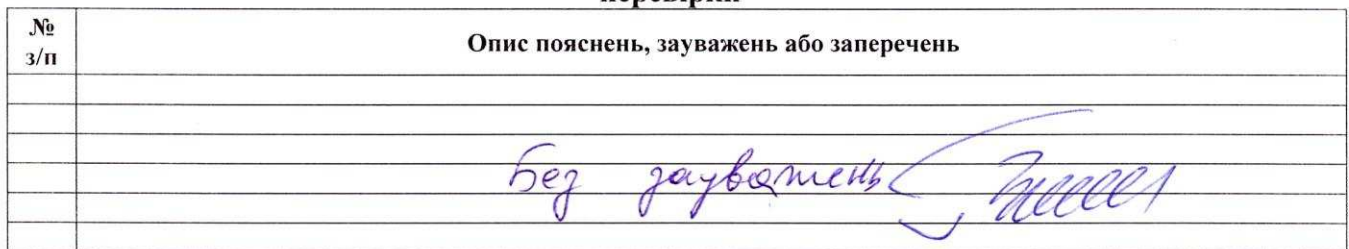 перевірки
№
з/п
Опис пояснень, зауважень або заперечень
Без зауважень